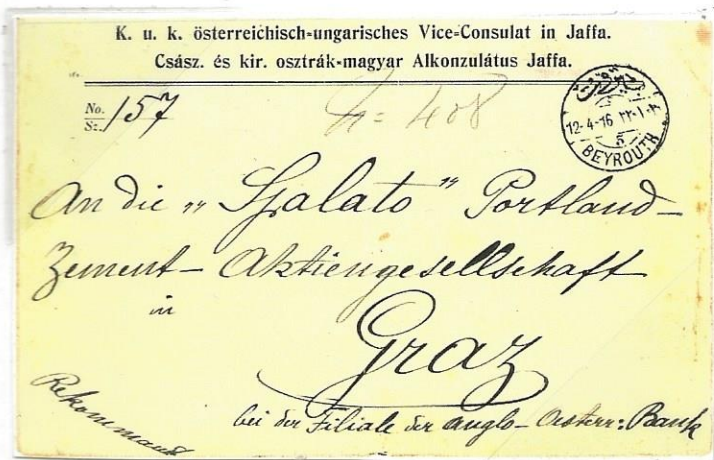 K. u. k. österreichisch-ungarisches Vice-Consulat in Jaffa.
Csász. és kir. osztrák-magyar Alkonzulátus Jaffa.
No.
Sz.
157
408
بيروت
12-4-16
5
BEYROUTH
An die „Spalato" Portland-
Zement- Aktiengesellschaft
in
Graz
bei der Filiale der Anglo-Oesterr: Bank
Rekommand